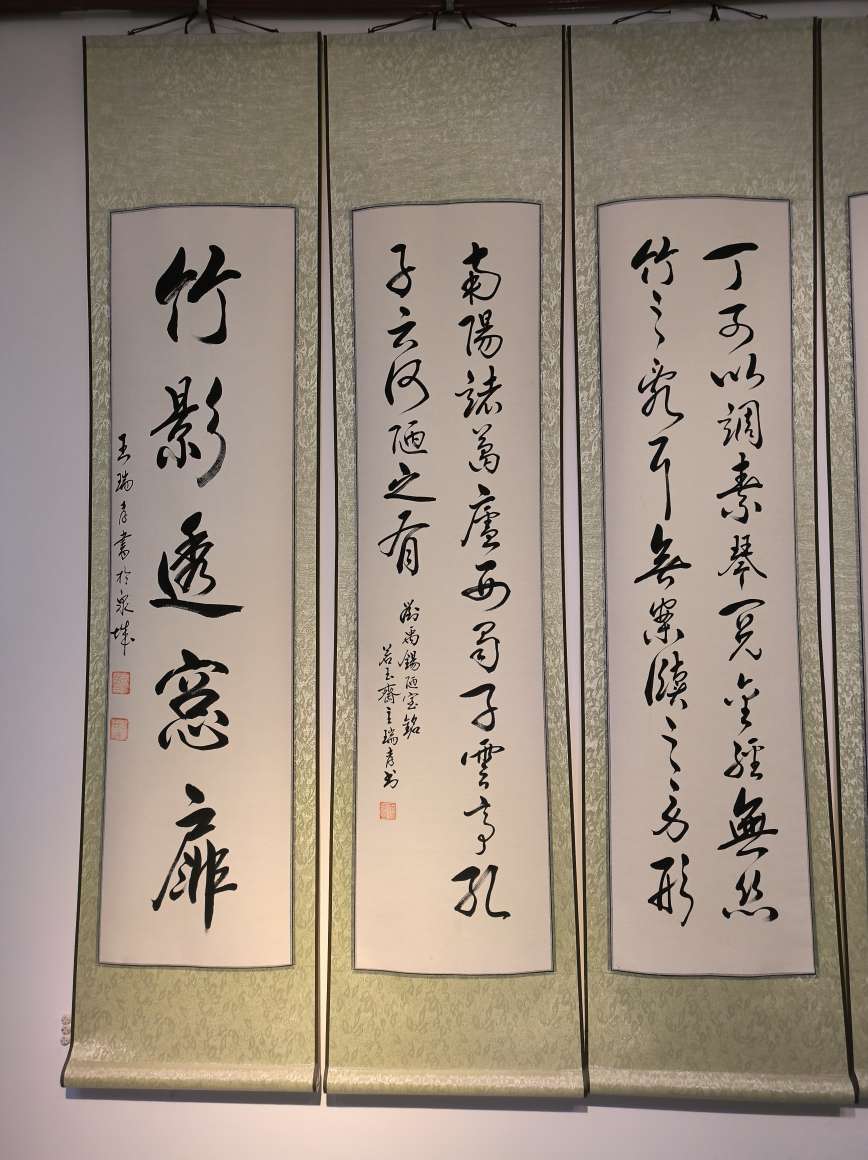 丁可以調素琴閱金經無絲
竹之亂耳無案牘之勞形
南陽諸葛廬西蜀子雲亭孔
子云何陋之有
劉禹錫陋室銘
若玉齋主瑞彦书
竹影透窓扉
王瑞彦書於泉城